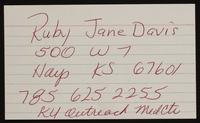 Ruby Jane Davis
500 W 7
Hays KS 67601
785 625 2255
KU Outreach Med Ctr